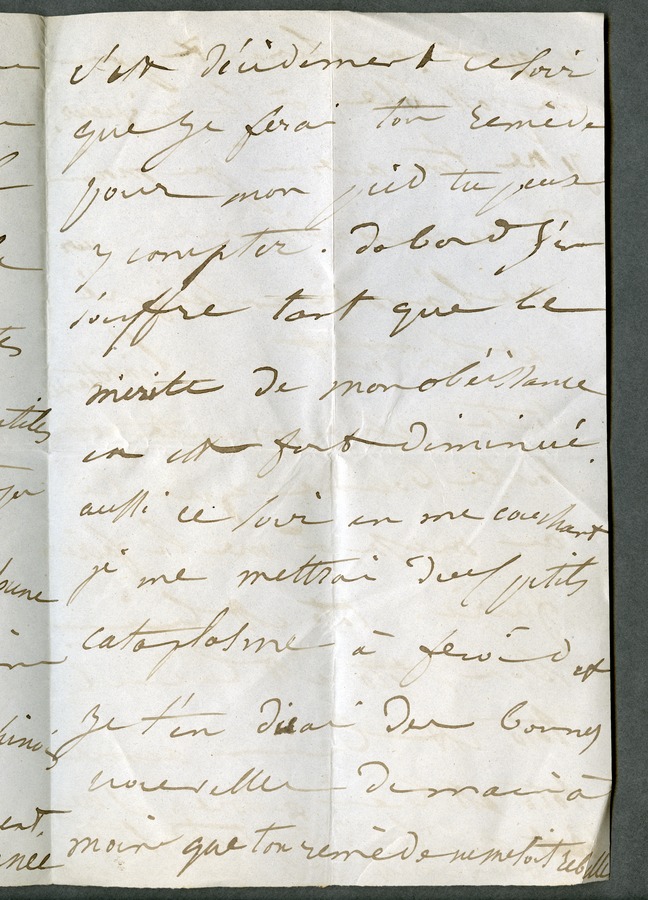 c'est décidément ce soir
que je ferai ton remède
pour mon pied tu peux
y compter. dabord j'en
souffre tant que le
mérite de mon obéissance
en est fort diminué.
aussi ce soir en me couchant
je me mettrai deux petits
cataplasme à froid et
je t'en dirai des bonnes
nouvelles demain à
moins que ton remède ne me soit rebelle